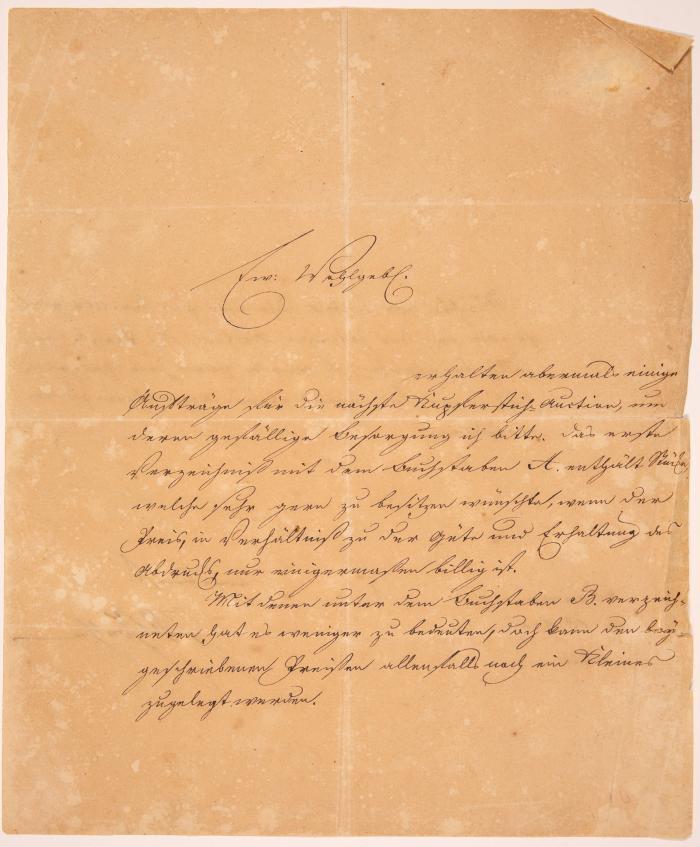 Ew: Wohlgeb.
erhalten abermals einige
Aufträge für die nächste Kupferstich-Auction, um
deren gefällige Besorgung ich bitte. Das erste
Verzeichniß mit dem Buchstaben A. enthält Stücke,
welche sehr gern zu besitzen wünschte, wenn der
Preis, in Verhältniß zu der Güte und Erhaltung des
Abdrucks, nur einigermaßen billig ist.
Mit denen unter dem Buchstaben B. verzeich-
neten hat es weniger zu bedeuten, doch kann den bey-
geschriebenen Preißen allenfalls noch ein Kleines
zugelegt werden.